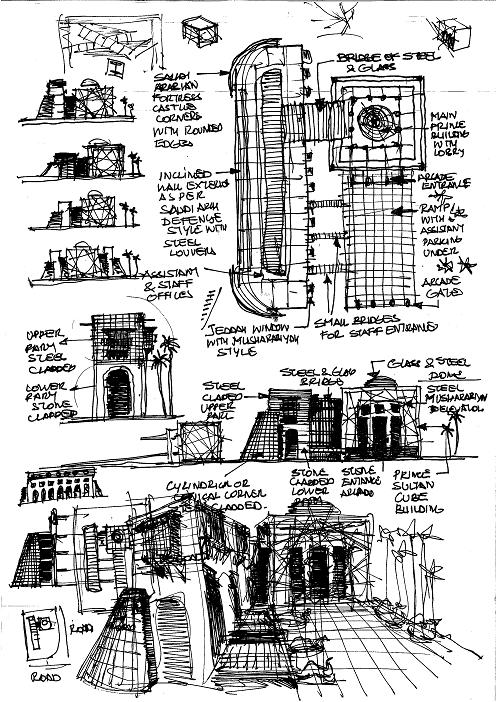 SAUDI
ARABIAN
FORTRESS
CASTLE
CORNERS
WITH ROUNDED
EDGES
BRIDGE OF STEEL
& GLASS
MAIN
PRINCE
BUILDING
WITH
LOBBY
INCLINED
WALL EXTERIOR
AS PER
SAUDI ARH
DEFENCE
STYLE WITH
STEEL
LOUVERS
ARCADE
ENTRANCE
RAMP
WITH
ASSISTANT
PARKING
UNDER
ASSISTANT
& STAFF
OFFICES
ARCADE
GATED
JEDDAH WINDOW
WITH MUSHARABIYAH
STYLE
SMALL BRIDGES
FOR STAFF ENTRANCE
UPPER
PART
STEEL
CLADDED
LOWER
PART
STONE
CLADDED
STEEL
CLADED
UPPER
PART
STEEL & GLASS
BRIDGE
GLASS & STEEL
DOME
STEEL
MUSHARABIYAH
ELEVATION
CYLINDRICAL OR
CONICAL CORNER
CLADDED
STONE
CLADDED
LOWER
STONE
ENTRANCE
ARCADE
PRINCE
SULTAN
CUBE
BUILDING
ROAD
ROAD